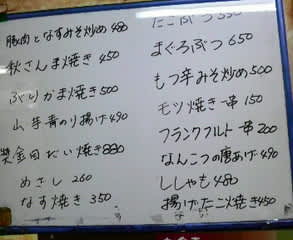 豚肉となすみそ炒め 480
秋さんま焼き 450
ぶりかま焼き 500
山芋青のり揚げ 490
黄金目だい焼き 880
めざし 260
なす焼き 350
たこぶつ 550
まぐろぶつ 650
もつ辛みそ炒め 500
モツ焼き一串 150
フランクフルト一串 200
なんこつの唐あげ 490
ししゃも 480
揚げたこ焼き 450